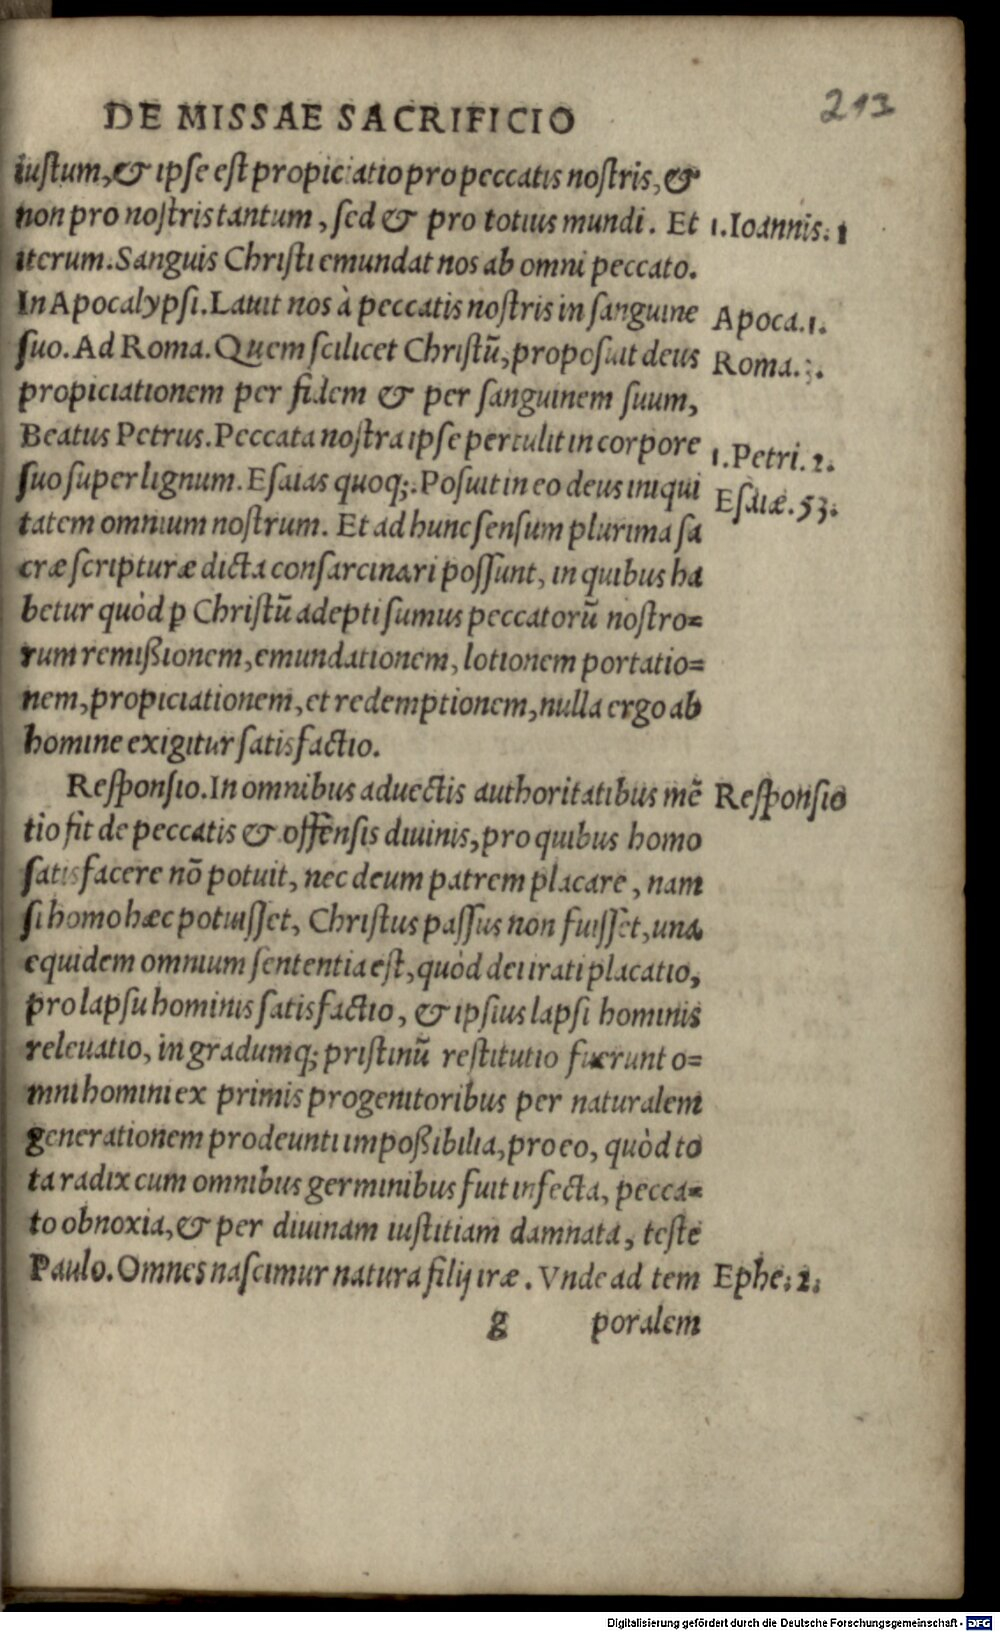 DE MISSAE SACRIFICIO
213
iustum, & ipse est propiciatio pro peccatis nostris, &
non pro nostris tantum, sed & pro totius mundi. Et
1. Ioannis. 1
iterum. Sanguis Christi emundat nos ab omni peccato.
In Apocalypsi. Lauit nos à peccatis nostris in sanguine
Apoca. 1.
suo. Ad Roma. Quem scilicet Christũ, proposuit deus
Roma. 3.
propiciationem per fidem & per sanguinem suum,
Beatus Petrus. Peccata nostra ipse pertulit in corpore
1. Petri. 2.
suo super lignum. Esaias quoq;. Posuit in eo deus iniqui
Esaiæ. 53.
tatem omnium nostrum. Et ad hunc sensum plurima sa
cræ scripturæ dicta consarcinari possunt, in quibus ha
betur quòd ꝑ Christũ adepti sumus peccatorũ nostro=
rum remißionem, emundationem, lotionem portatio=
nem, propiciationem, et redemptionem, nulla ergo ab
homine exigitur satisfactio.
Responsio. In omnibus aduectis authoritatibus mẽ
Responsio
tio fit de peccatis & offensis diuinis, pro quibus homo
satisfacere nõ potuit, nec deum patrem placare, nam
si homo hæc potuisset, Christus passus non fuisset, una
equidem omnium sententia est, quòd dei irati placatio,
pro lapsu hominis satisfactio, & ipsius lapsi hominis
releuatio, in gradumq; pristinũ restitutio fuerunt o=
mni homini ex primis progenitoribus per naturalem
generationem prodeunti impoßibilia, pro eo, quòd to
ta radix cum omnibus germinibus fuit infecta, pecca=
to obnoxia, & per diuinam iustitiam damnata, teste
Paulo. Omnes nascimur natura filij iræ. Vnde ad tem
Ephe. 2.
g poralem
Digitalisierung gefördert durch die Deutsche Forschungsgemeinschaft - DFG